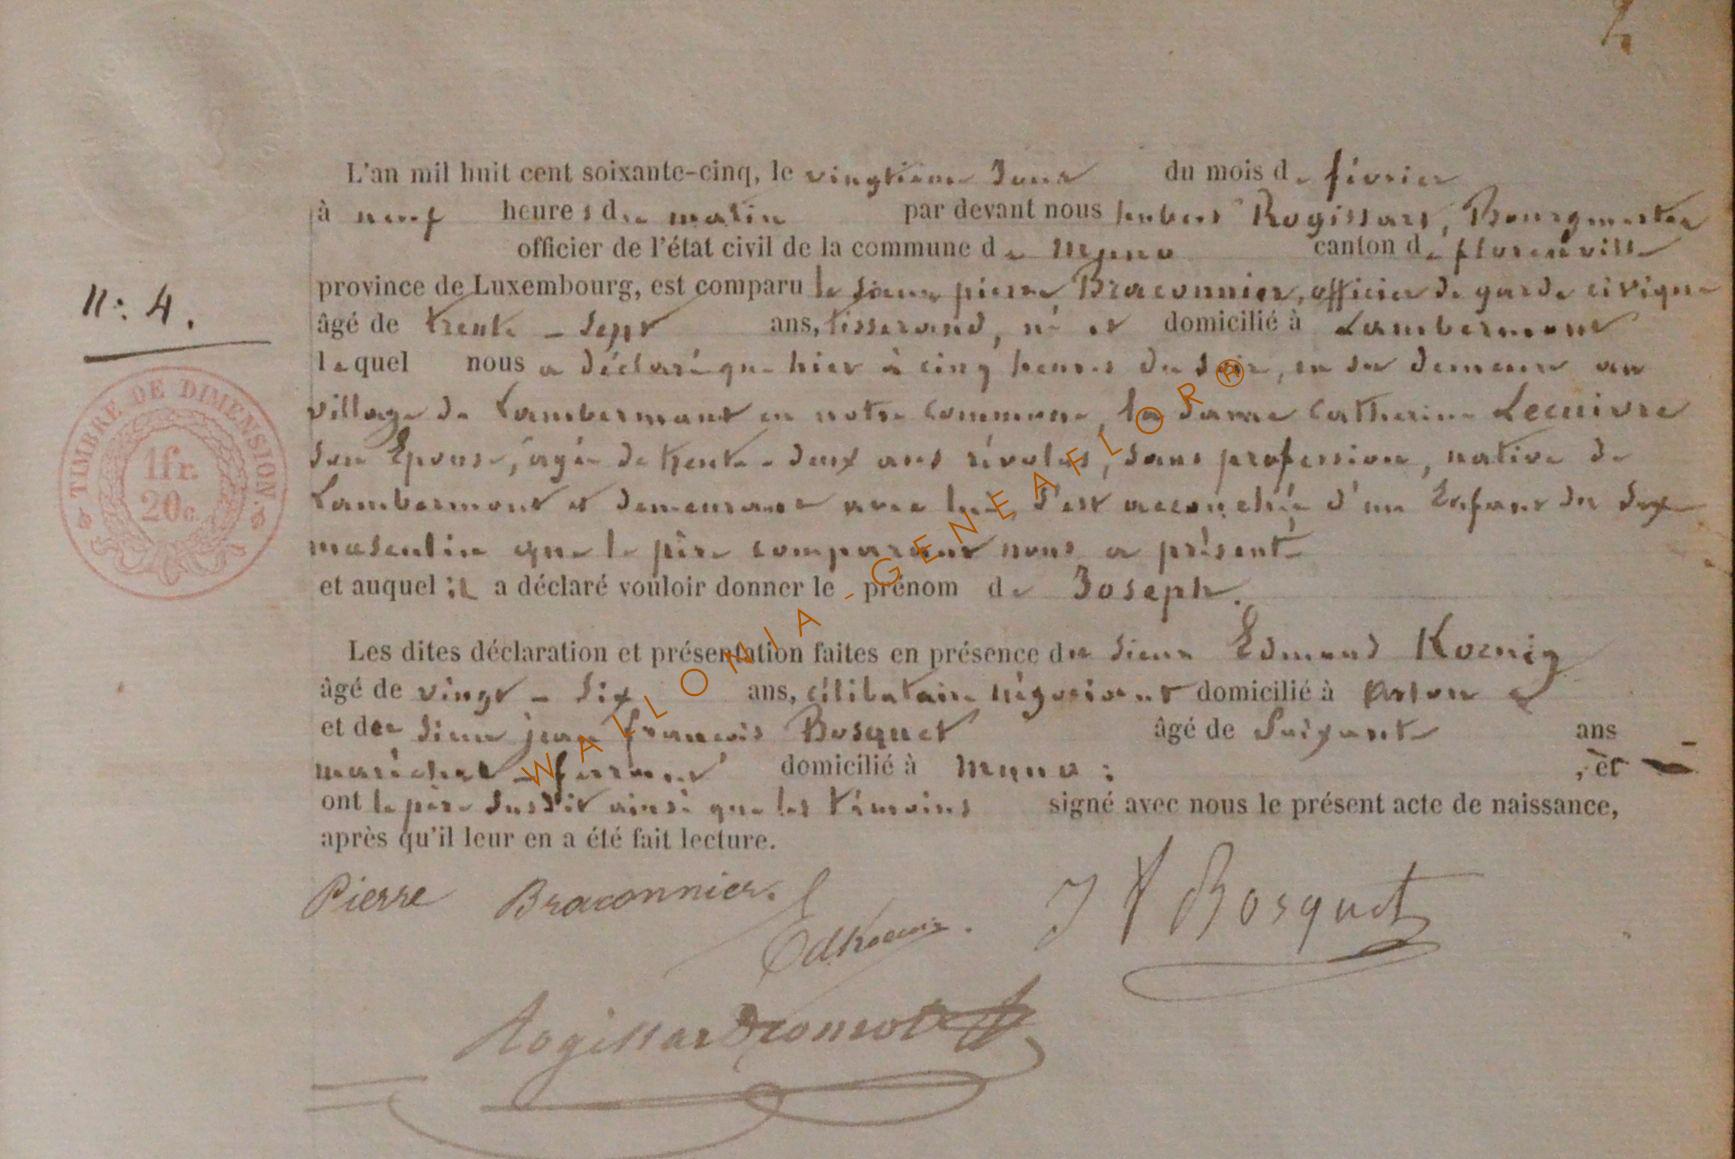 2
L'an mil huit cent soixante-cinq, le vingtième Jour du mois de février
à neuf heures du matin par devant nous hubert Rogissart, Bourgmestre
officier de l'état civil de la commune de Muno canton de florenville
N°: 4.
province de Luxembourg, est comparu le sieur pierre Braconnier, officier de garde civique
âgé de trente - Sept ans, tisserand, né et domicilié à Lambermont
lequel nous a déclaré que hier à cinq heures du soir, en sa demeure au
village de Lambermont en notre commune, la Dame Catherine Lecuivre
son Epouse, âgée de trente - deux ans révolus, sans profession, native de
Lambermont et demeurant avec lui, s'est accouchée d'un Enfant du sexe
masculin que le père comparant nous a présenté
et auquel il a déclaré vouloir donner le prénom de Joseph.
TIMBRE DE DIMENSION.
1fr.
20c.
Les dites déclaration et présentation faites en présence du sieur Edmond Koenig
âgé de vingt - Six ans, célibataire négociant domicilié à Arlon
et de sieur jean françois Bosquet âgé de Soixante ans
maréchal - ferrant domicilié à Muno ; , et
ont le père susdit ainsi que les témoins signé avec nous le présent acte de naissance,
après qu'il leur en a été fait lecture.
Pierre Braconnier.
EdKoenig.
J F Bosquet
Rogissart
WALLONIA - GENEAFLOR®